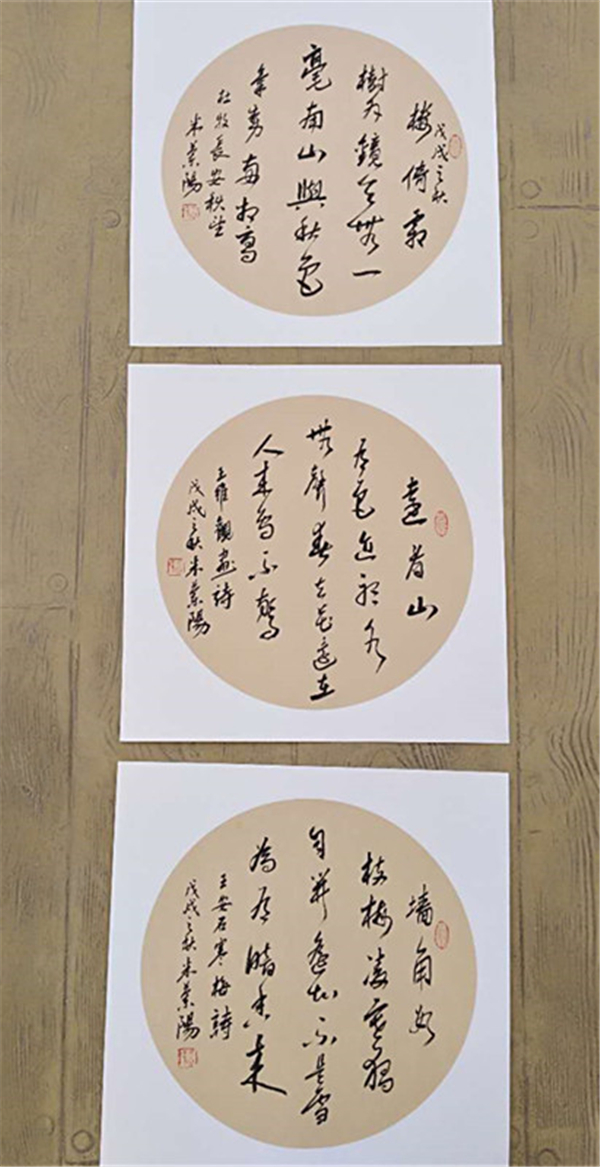 戊戌之秋
楼倚霜
樹外鏡天無一
毫南山與秋色
氣勢兩相高
杜牧長安秋望
遠看山
有色近聽水
無聲春去花還在
人来鳥不驚
王維觀畫詩
戊戌之秋
墙角數
枝梅凌寒獨
自開遥知不是雪
為有暗香来
王安石寒梅詩
戊戌之秋